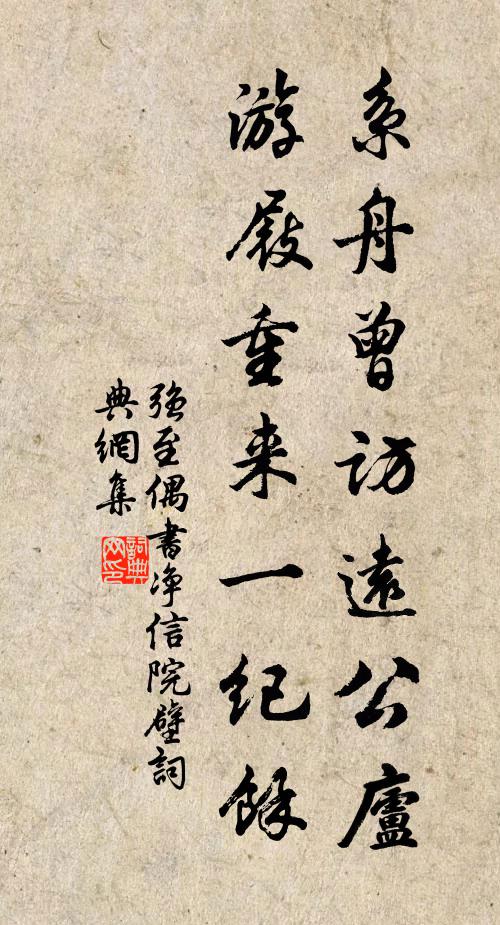 系舟曾访遠公廬
游屐重来一纪餘
强至偶書净信院壁詞
典網集
詞典网印